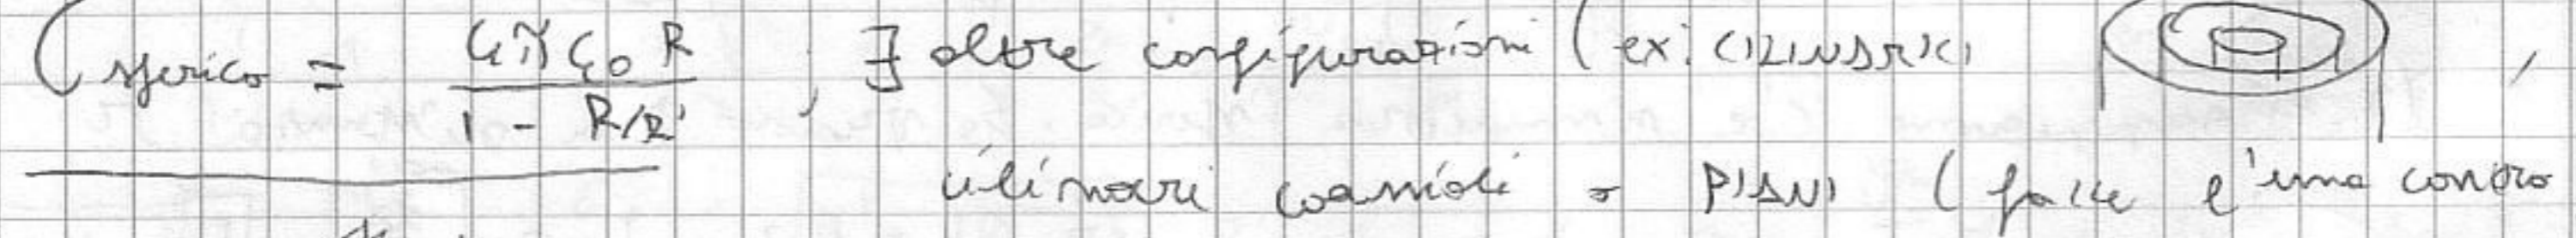 C sferico = 4πε₀R / (1 - R/R') , ∃ altre configurazioni ( ex: CILINDRICI ,
cilindri coassiali o PIANI ( facce l'una contro